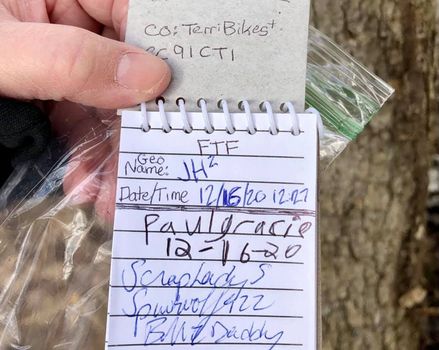 CO: TerriBikes+
GC91CT1
FTF
Geo
Name: JH²
Date/Time 12/15/20 12:27
Paulgracie
12-16-20
ScrapLadyS